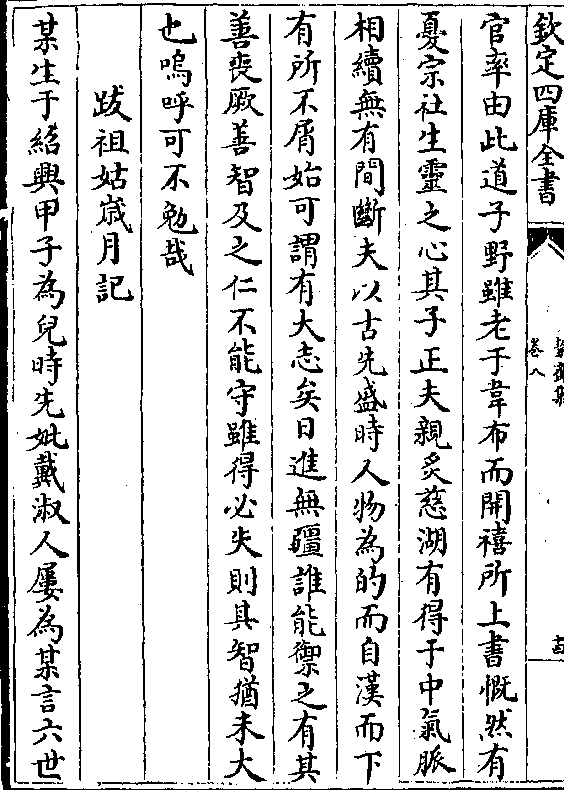 欽定四庫全書
絜齋集
卷八
官率由此道子野雖老于韋布而開禧所上書慨然有
憂宗社生靈之心其子正夫親炙慈湖有得于中氣脈
相續無有間斷夫以古先盛時人物為的而自漢而下
有所不屑始可謂有大志矣日進無疆誰能禦之有其
善喪厥善智及之仁不能守雖得必失則其智猶未大
也嗚呼可不勉哉
跋祖姑歲月記
某生于紹興甲子為兒時先妣戴淑人屢為某言六世